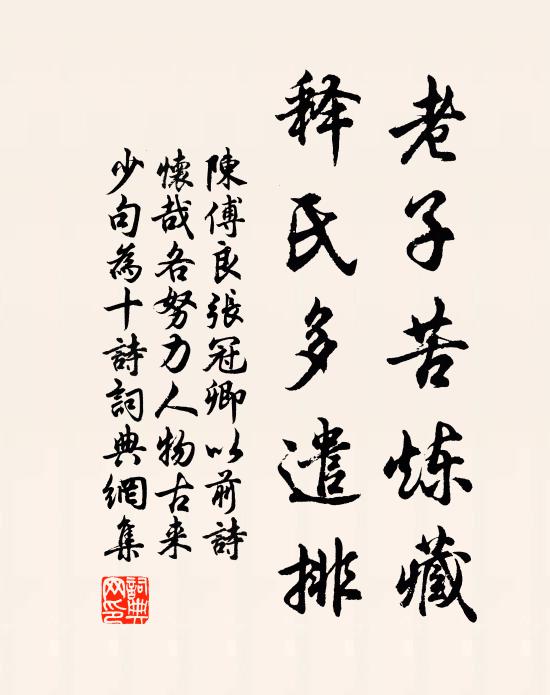 老子苦炼藏
释氏多遣排
陳傅良張冠卿以前詩
懷哉各努力人物古来
少句為十詩詞典網集
詞典网印